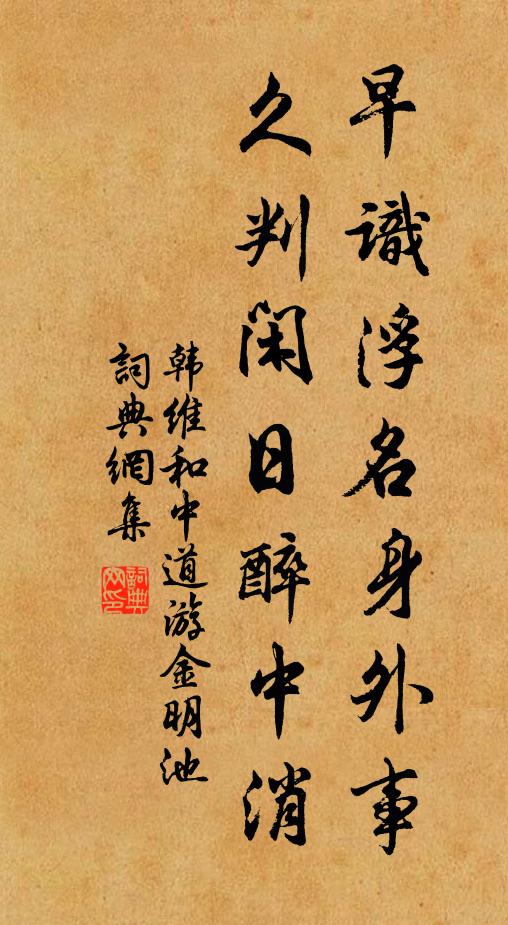 早識浮名身外事
久判閑日醉中消
韩維和中道游金明池
詞典網集
詞典
网印